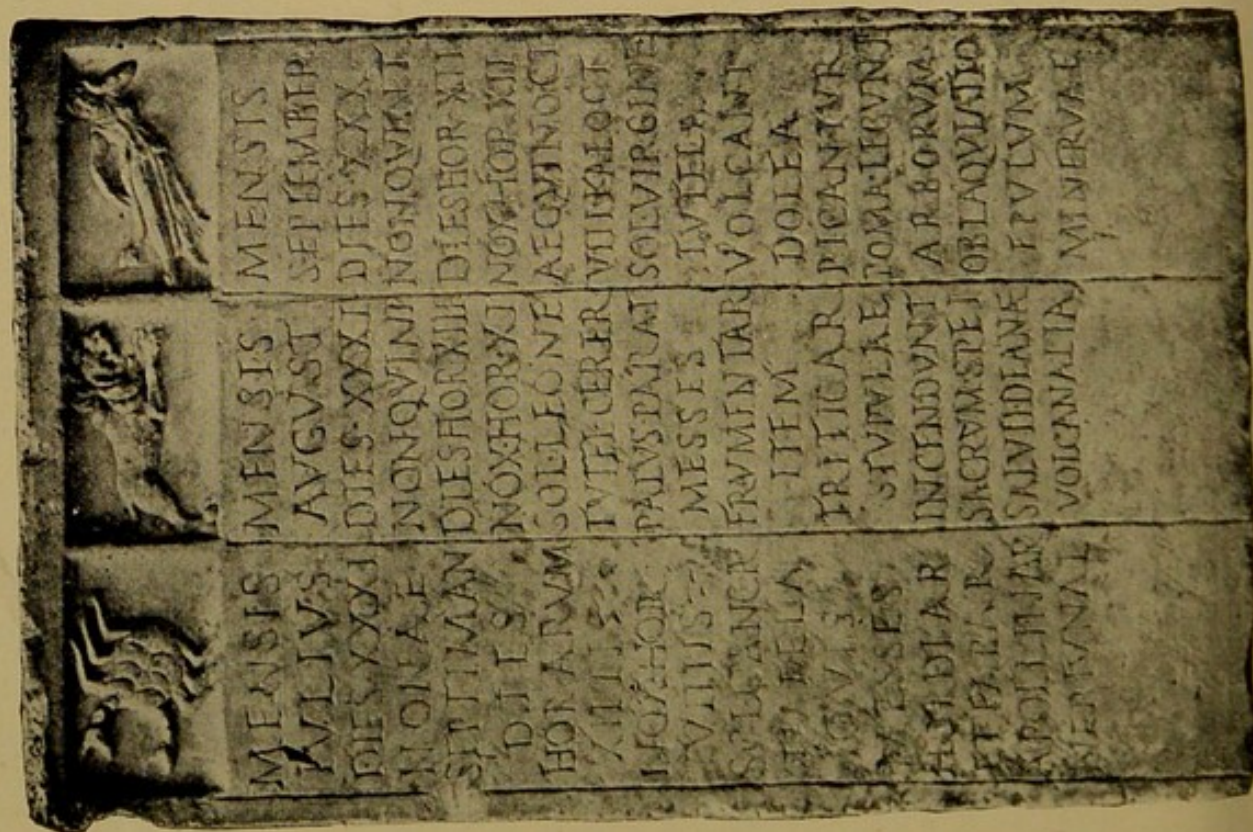 MENSIS
IVLIVS
DIES XXXI
NONAE
SEPTIMAN
DIES
HORARVM
XIIII
NOX HOR
VIIII
SOL CANCR
TVTELA
IOVIS
MESSES
HORDIAR
ET FABAR
APOLLINAR
NEPTVNAL
MENSIS
AVGVST
DIES·XXXI
NON QVINT
DIES HOR XIII
NOX·HOR·XI
SOL·LEONE
TVTEL CERER
PALVS PARAT
MESSES
FRVMENTAR
ITEM
TRITICAR
STVPVLAE
INCENDVNT
SACRVM·SPEI
SALVTI·DIANAE
VOLCANALIA
MENSIS
SEPTEMBER
DIES·XXX
NON·QVINT
DIES HOR XII
NOX·HOR XII
AEQVINOCT
VIII KAL OCT
SOL VIRGINE
TVTELA
VOLCANI
DOLEA
PICANTVR
POMA LEGVNT
ARBORVM
OBLAQVIATIO
EPVLVM
MINERVAE